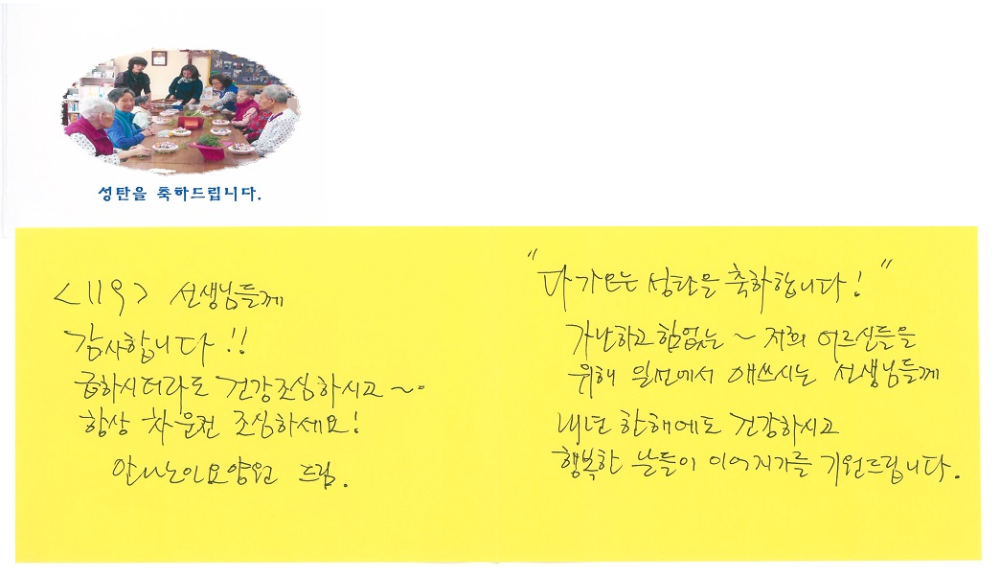 성탄을 축하드립니다.
<119> 선생님들께
감사합니다!!
급하시더라도 건강조심하시고~.
항상 차운전 조심하세요!
안나노인요양원 드림.
"다가오는 성탄을 축하합니다!"
가난하고 힘없는 ~ 저희 어르신들을
위해 일선에서 애쓰시는 선생님들께
내년 한해에도 건강하시고
행복한 날들이 이어지기를 기원드립니다.